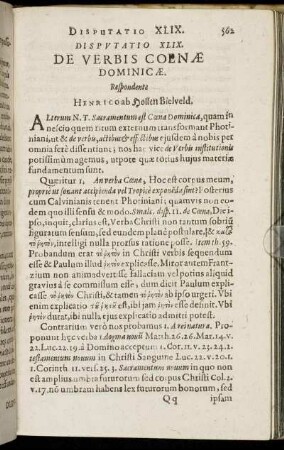 DISPUTATIO XLIX. 562
DISPVTATIO XLIX.
DE VERBIS COENÆ
DOMINICÆ.
Respondente
HENRICO ab Hossem Bielveld.
ALterum N. T. Sacramentum est Cœna Dominica, quam in
nescio quem ritum externum transformant Photini-
ani, ut & de verbis, actibus & essectibus ejusdem à nobis per
omnia ferè dissentiunt; nos hac vice de Verbis institutionis
potissimùm agemus, utpote quæ totius hujus materiæ
fundamentum sunt.
Quæritur 1. An verba Cœnæ, Hoc est corpus meum,
propriè ut sonant accipienda vel Tropicè exponenda sint? Posterius
cum Calvinianis tenent Photiniani, quamvis non eo-
dem quo illi sensu & modo. Smalc. disp. 11. de Cœna. Di-
rip so, inquit, clarius est, Verba Christi non tantum sobriè
figuratum sensum, sed eundem planè postulare, & καλὰ
τὸ ῥητὸν, intelligi nulla prorsus ratione posse. item th. 59.
Probandum erat τὸ ῥητὸν in Christi verbis sequendum
esse & Paulum illud ῥητὸν explicasse. Miror autem Fran-
tzium non animadvertisse fallaciam vel potius aliquid
gravius à se commissum esse, dum dicit Paulum expli-
casse τὸ ῥητὸν Christi, & tamen τὸ ῥητὸν ab ipso urgeri. Vbi
enim explicatio τοῦ ῥητοῦ est, ibi jam ῥητὸν esse desinit. Vbi
ῥητὸν durat, ibi nulla ejus explicatio admitti potest.
Contrarium verò nos probamus 1. A re inatura. Pro-
ponunt hęc verba 1 dogma novū Matth. 26. 26. Mar. 14. v.
22. Luc. 22. 19. à Domino acceptum 1. Cor. 11. v. 23. 24. 2.
testamentum novum in Christi Sanguine Luc. 22. v. 20. 1.
1. Corinth. 11. vers. 25. 3. Sacramentum novum in quo non
est amplius umbra futurorum sed corpus Christi Col. 2.
v. 17. nō umbram habens lex futurorum bonorum, sed
Qq ipsam